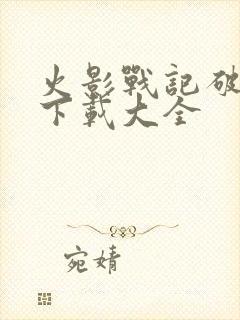 火影戰記破
下載大全
宛婧